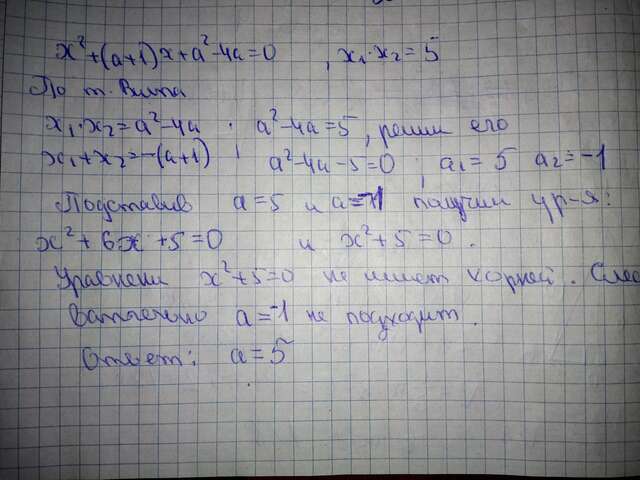 x²+(a+1)x+a²-4a=0, x₁·x₂=5
По т. Виета
x₁·x₂=a²-4a. a²-4a=5, решим его
x₁+x₂=-(a+1); a²-4a-5=0, a₁=5 a₂=-1
Подставив a=5 и a=-1 получим ур-я:
x²+6x+5=0 и x²+5=0.
Уравнение x²+5=0 не имеет корней. След
a=-1 не подходит.
Ответ: a=5